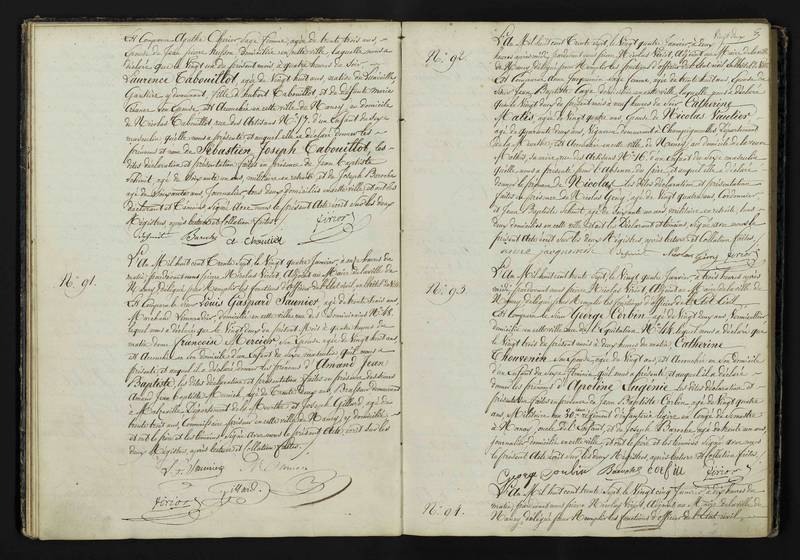 Est comparue Agathe sage femme, agée de trente trois ans,
Epouse de Jean pierre domiciliée en cette ville laquelle nous a
déclaré que le Vingt du présent mois à quatre heures du Soir
Laurence Cabouillot, agée de Vingt huit ans, native de Lunéville,
y demeurant, fille d'hubert Cabouillot, et de défunte marie
Son Epouse, est Accouchée en cette ville de Nancy, au domicile
de Nicolas Cabouillot rue des Artisans N° 17, d'un Enfant du Sexe
masculin, qu'elle nous a présenté et auquel elle a déclaré donner les
prénoms et nom de Sébastien Joseph Cabouillot, les
dites déclaration et présentation faites en présence de Jean Baptiste
Schmit, agé de Soixante un ans, militaire en retraite, et de Joseph
agé de ans Journalier, tous deux domiciliés en cette ville, et ont les
déclarant et témoins Signé Avec nous le présent Acte écrit sur les deux
Registres, après lecture et Collation faites.
Schmit
Férior
N° 91.
L'An Mil huit cent Trente Sept, le Vingt quatre Janvier, à onze heures du
matin, pardevant nous pierre Nicolas Férior, Adjoint au Maire de la ville de
Nancy délégué pour Remplir les fonctions d'officier de l'état civil
Est Comparu le Sieur Louis Gaspard Saunier, agé de trente trois ans,
Marchand Limonadier, domicilié en cette ville rue des Dominicains N° 48,
lequel nous a déclaré que le Vingt deux du présent Mois à quatre heures du
matin Dame françoise Mercier Son Epouse agée de Vingt huit ans,
est Accouchée en son domicile d'un Enfant du Sexe masculin qu'il nous a
présenté, et auquel il a déclaré donner les prénoms d'Amand Jean
Baptiste, les dites déclaration et présentation faites en présence des Sieurs
Amand Jean baptiste Mercier, agé de trente ans, Brasseur demeurant
à Département de la Meurthe et Joseph agé de
trente trois ans, Commissaire priseur en cette ville de Nancy, y domicilié,
et ont le père et les témoins Signé Avec nous le présent Acte écrit sur les
deux Registres, après lecture et Collation faites.
Férior
N° 92.
L'An Mil huit cent Trente Sept, le Vingt quatre Janvier, à deux
heures après midi pardevant nous pierre Nicolas Férior, Adjoint au Maire de la ville
de Nancy, délégué pour Remplir les fonctions d'officier de l'Etat civil
Est Comparue Anne Jacquemin sage femme, agée de trente huit ans, Epouse du
Sieur Jean Baptiste domiciliée en cette ville, laquelle nous a déclaré
que le Vingt du présent mois à neuf heures du Soir Catherine
Mathis, agée de Vingt quatre ans, Epouse de Nicolas Vautier
agé de quarante deux ans, Vigneron demeurant à Champigneulles Département
de la Meurthe, est Accouchée en cette ville de Nancy, au domicile de la veuve
Mathis, sa mère, rue des Artisans N° 16, d'un Enfant du Sexe masculin
qu'elle nous a présenté, pour l'absence du père, et auquel elle a déclaré
donner le prénom de Nicolas, les dites déclaration et présentation
faites en présence de Nicolas Georg, agé de Vingt quatre ans, Cordonnier,
et Jean Baptiste Schmit, agé de Soixante un ans militaire en retraite, tous
deux domiciliés en cette ville et ont les Déclarant et témoins Signé avec nous le
présent Acte écrit sur les deux Registres, après lecture et Collation faites.
anne jacquemin Schmit Nicolas Georg Férior
N° 93
L'An Mil huit cent Trente Sept, le Vingt quatre Janvier à trois heures après
midi pardevant nous pierre Nicolas Férior, Adjoint au Maire de la ville de
Nancy, délégué pour Remplir les fonctions d'officier de l'Etat Civil,
Est Comparu le Sieur George Corbin, agé de Vingt deux ans, Vermicellier
domicilié en cette ville rue de l'Equitation N° 48, lequel nous a déclaré que
le Vingt trois du présent mois à deux heures du matin, Catherine
Thouvenin Son Epouse, agée de Vingt ans, est Accouchée en Son domicile
d'un Enfant du Sexe féminin, qu'il nous a présenté et auquel il a déclaré
donner les prénoms d'Apoline Eugénie, les dites déclaration et
présentation faites en présence de Jean Baptiste Corbin, agé de Vingt quatre
ans, Militaire au 30ème régiment d'infanterie légère en Congé de Semestre
à Nancy, oncle de l'Enfant, et de Joseph agé de trente un ans,
journalier domicilié en cette ville, et ont le père et les témoins Signé avec nous
le présent Acte écrit sur les deux Registres, après lecture et Collation faites.
George Corbin Corbin Férior
N° 94.
L'An Mil huit cent trente Sept, le Vingt cinq Janvier à dix heures du
matin, pardevant nous pierre Nicolas Férior, Adjoint au Maire de la ville de
Nancy, délégué pour Remplir les fonctions d'officier de l'Etat civil